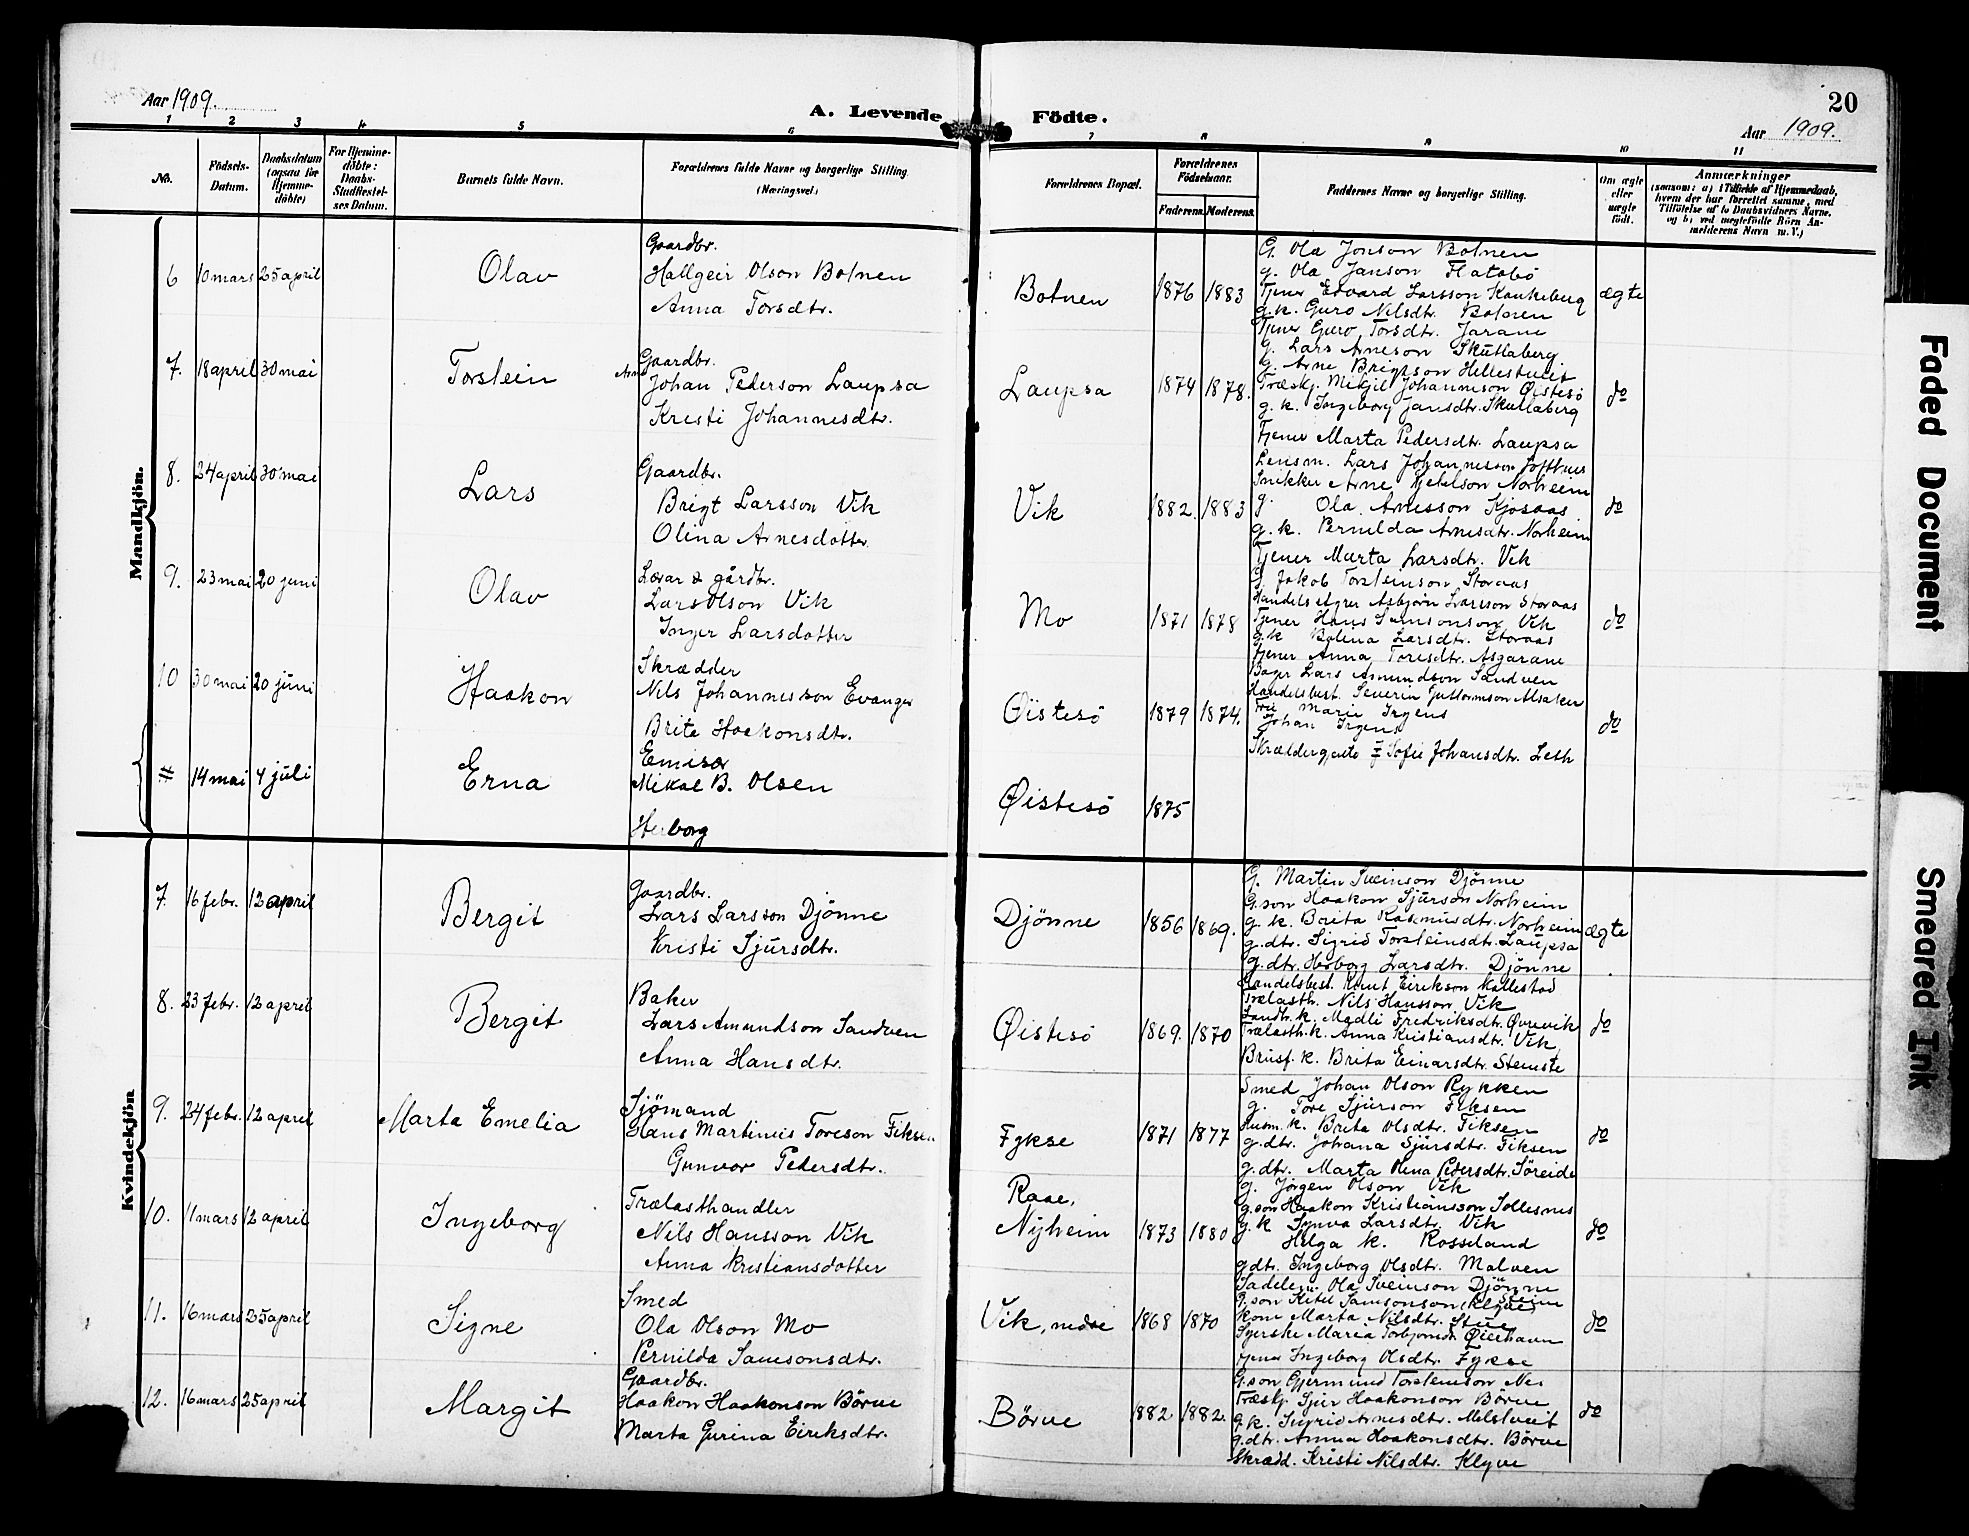 Aar 1909.
A. Levende Födte.
20
Aar 1909.
1 2 3 4 5 6 7 8 9 10 11
No.
Födsels-
Datum.
Daabsdatum
(ogsaa for
Hjemme-
döbte)
For Hjemme-
döbte:
Daabs-
Stadfæstel-
ses Datum.
Barnets fulde Navn.
Forældrenes fulde Navne og borgerlige Stilling
(Næringsvei)
Forældrenes Bopæl.
Forældrenes
Födselsaar.
Faderens. Moderens.
Faddernes Navne og borgerlige Stilling.
Om ægte
eller
uægte
födt.
Anmærkninger
(saasom: a) i Tilfælde af Hjemmedaab,
hvem der har forrettet samme, med
Tilföielse af to Daabsvidners Navne,
og b) ved uægtefödte Börn An-
melderens Navn m. V.)
Mandkjön.
6 10 mars 25 april Olav
Gaardbr.
Hallgeir Olson Botnen
Anna Torsdtr.
Botnen 1876 1883
G. Ola Jonson Botnen
g. Ola Janson Flatabö
Tjener Edvard Larsson Kaukeberg
g.k. Guro Nilsdtr. Botnen
Tjener Guro Torsdtr. Jarane
ægte
7. 18 april 30 mai Torstein
Gaardbr.
Johan Pederson Laupsa
Kristi Johannesdtr.
Laupsa 1874 1878.
g. Lars Arneson Skutlaberg
g. Arne Brigtson Hellestveit
Træskj. Mikjil Johanneson Øistesö
g. k. Ingeborg Jansdtr. Skutlaberg
Tjener Marta Pedersdtr. Laupsa
do
8. 24 april 30 mai Lars
Gaardbr.
Brigt Larsson Vik
Olina Arnesdotter
Vik 1882. 1883
Lensm. Lars Johannesson Tofthus
Snikker Arne Kjetelson Norheim
g. Ola Arnesson Kjosaas
g. k. Pernilda Arnesdtr. Norheim
Tjener Marta Larsdtr. Vik
do
9. 23 mai 20 juni Olav
Lærar & gårdbr.
Lars Olson Vik
Inger Larsdotter
Mo 1871 1878
G. Jakob Torsteinson Storaas
Handelsstyrer Asbjörn Larsson Storaas
Tjener Hans Samsonson Vik
g.k. Bolena Larsdtr. Storaas
Tjener Anna Toresdtr. Asgarane
do
10 30 mai 20 juni Haakon
Skrædder
Nils Johannesson Evanger
Brita Haakonsdtr.
Øistesö 1879 1874.
Bager Lars Amundson Sandven
Handelsbest. Severin Guttormson Alsaker
Fru Marie Irgens
Johan Irgens
Skræddergjente Sofie Johansdtr. Leth
do
# 14 mai 4 juli Erna
Emisær
Mikal B. Olsen
Herborg
Øistesö 1875
Kvindekjön
7. 16 febr. 12 april Bergit
Gaardbr.
Lars Larsson Djönne
Kristi Sjursdtr.
Djönne 1856 1869.
G. Martin Sveinson Djönne
G.son Haakon Sjurson Norheim
g. k. Brita Rasmusdtr. Norheim
g.dtr. Sigrid Torsteinsdtr. Laupsa
g.dtr. Herborg Larsdtr. Djönne
ægte
8. 23 febr. 12 april Bergit
Baker
Lars Amundson Sandven
Anna Hansdtr.
Øistesö 1869. 1870
Handelsbest. Knut Eirikson Kallestad
Trælasth. Nils Hansson Vik
Landh. k. Madli Fredriksdtr. Øvrevik
Trælasth. k. Anna Kristiansdtr. Vik
Brusf. k. Brita Einarsdtr. Steinstø
do
9. 24 febr. 12 april Marta Emelia
Sjömand
Hans Martinius Toreson Fiksen
Gunvor Pedersdtr.
Fykse 1871 1877
Smed Johan Olson Rykken
g. Tore Sjurson Fiksen
Husm. k. Brita Olsdtr. Fiksen
g.dtr. Johana Sjursdtr. Fiksen
g.dtr. Marta Olena Pedersdtr. Söreide
do
10. 11 mars 12 april Ingeborg
Trælasthandler
Nils Hansson Vik
Anna Kristiansdotter
Raae,
Nyheim 1873 1880
g. Jörgen Olson Vik
g.son Haakon Kristiansson Sollesnes
g. k. Synva Larsdtr. Vik
Helga k. Rosseland
g.dtr. Ingeborg Olsdtr. Malven
do
11. 16 mars 25 april Signe
Smed
Ola Olson Mo
Pernilda Samsonsdtr.
Vik, nedre 1868 1870
Sadelm. Ola Sveinson Djönne
G.son Kitel Samsonson (Klyve) Steine
Kone Marta Nilsdtr. Stue
Syerske Maria Torbjornsdtr. Øiehavn
Tjener Ingeborg Olsdtr. Fykse
do
12. 16 mars 25 april Margit
Gaardbr.
Haakon Haakonson Börve
Marta Gurina Eiriksdtr.
Börve 1882 1882.
G.son Gjermund Torsteinson Nes
Træskj. Sjur Haakonson Börve
g.k. Sigrid Arnesdtr. Melstveit
g.dtr. Anna Haakonsdtr. Börve
Skrædd. Kristi Nilsdtr. Klyve
do
Faded Document
Smeared Ink